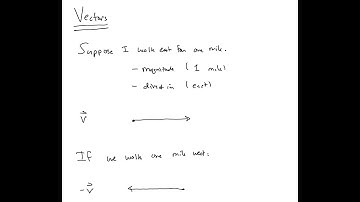 Vectors
Suppose I walk east for one mile.
- magnitude (1 mile)
- direction (east)
v
If we walk one mile west:
-v